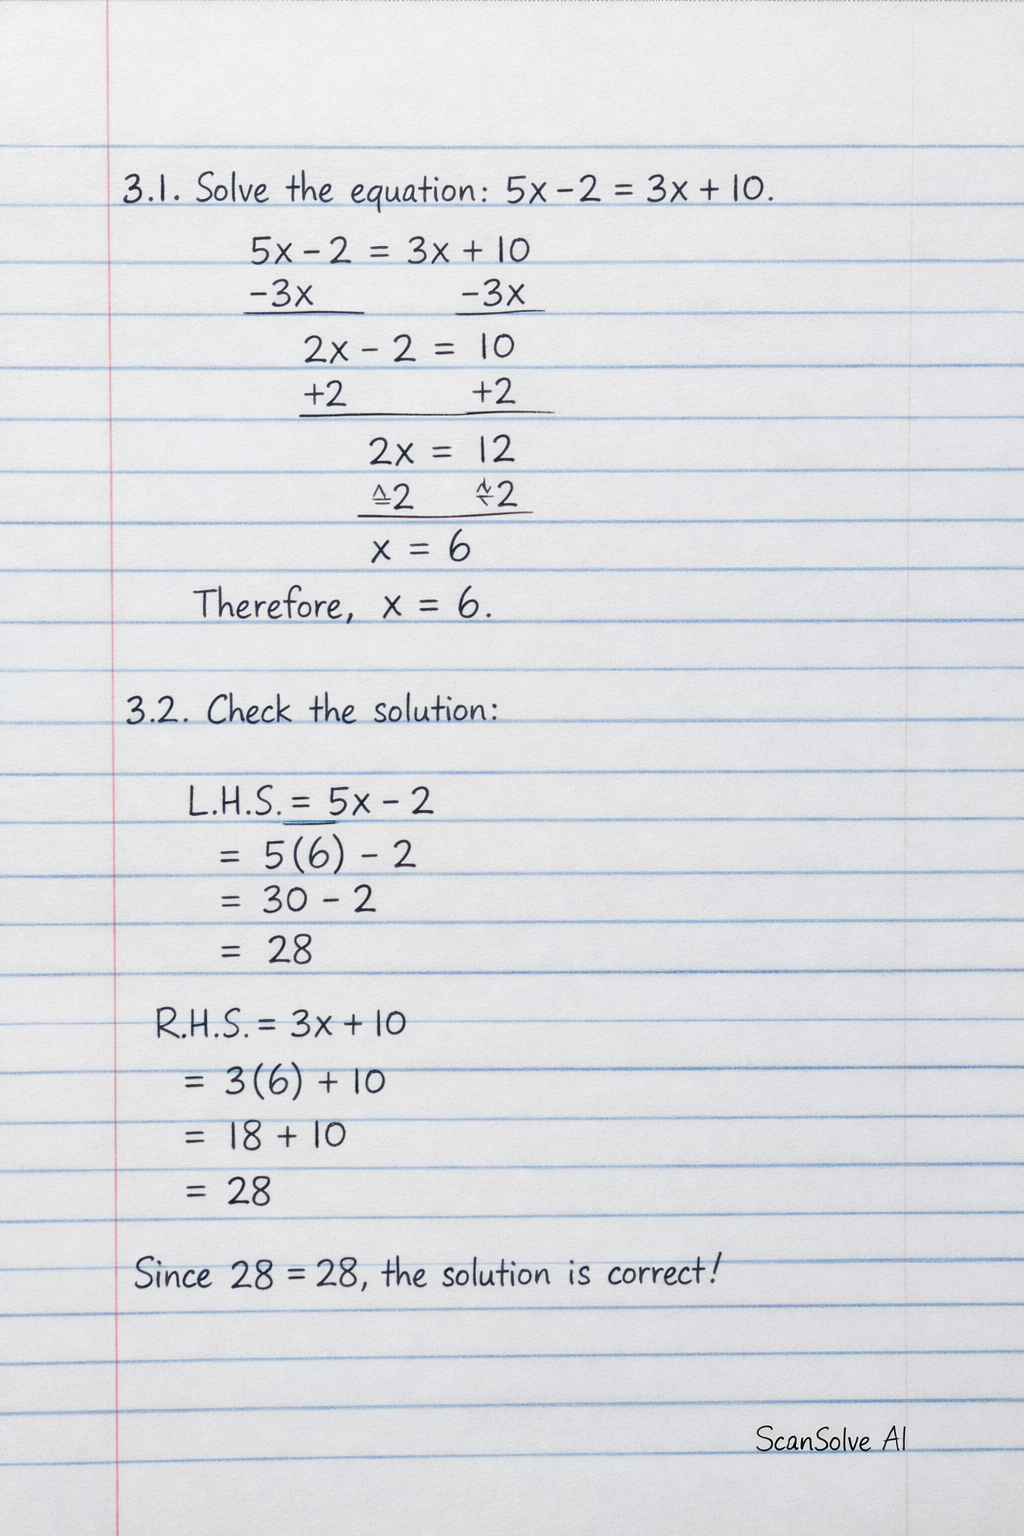 3.1. Solve the equation: 5x - 2 = 3x + 10.
5x - 2 = 3x + 10
-3x -3x
2x - 2 = 10
+2 +2
2x = 12
2 2
x = 6
Therefore, x = 6.
3.2. Check the solution:
L.H.S. = 5x - 2
= 5(6) - 2
= 30 - 2
= 28
R.H.S. = 3x + 10
= 3(6) + 10
= 18 + 10
= 28
Since 28 = 28, the solution is correct!
ScanSolve AI